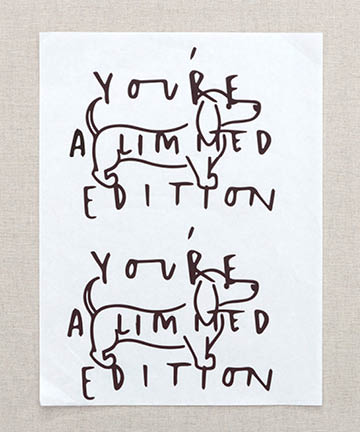 YOU'RE
A LIMITED
EDITION
YOU'RE
A LIMITED
EDITION